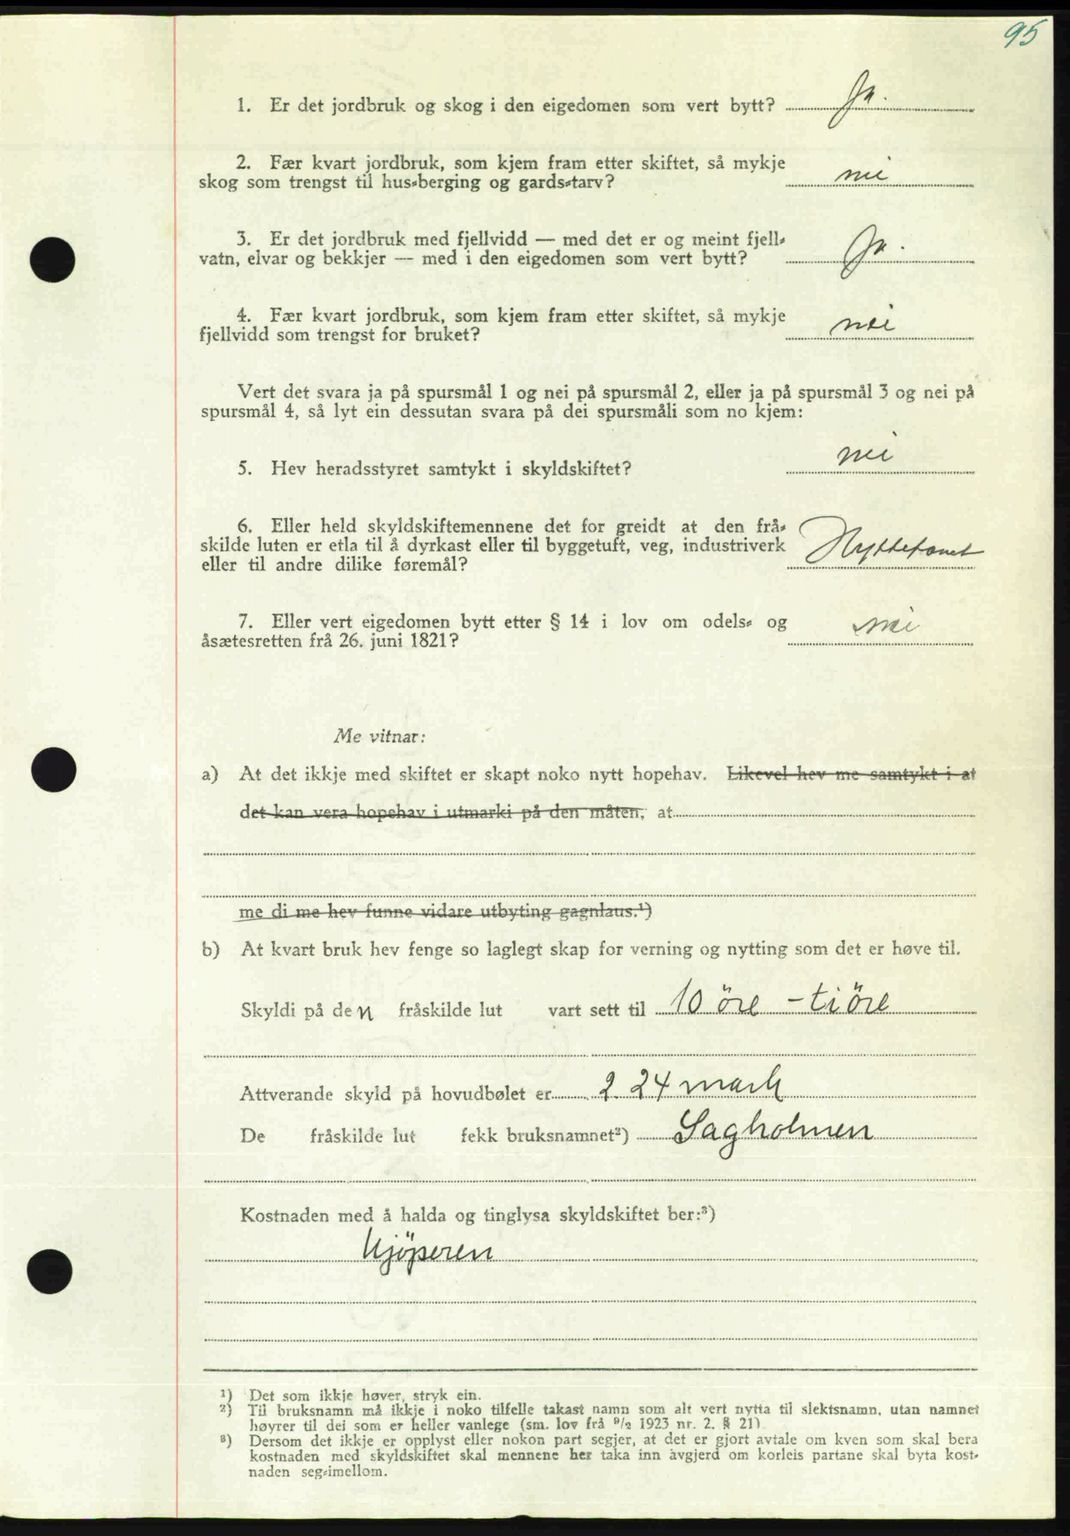 95
1. Er det jordbruk og skog i den eigedomen som vert bytt? Ja.
2. Fær kvart jordbruk, som kjem fram etter skiftet, så mykje
skog som trengst til hus-berging og gards-tarv? nei
3. Er det jordbruk med fjellvidd — med det er og meint fjell-
vatn, elvar og bekkjer — med i den eigedomen som vert bytt? Ja.
4. Fær kvart jordbruk, som kjem fram etter skiftet, så mykje
fjellvidd som trengst for bruket? nei
Vert det svara ja på spursmål 1 og nei på spursmål 2, eller ja på spursmål 3 og nei på
spursmål 4, så lyt ein dessutan svara på dei spursmåli som no kjem:
5. Hev heradsstyret samtykt i skyldskiftet? nei
6. Eller held skyldskiftemennene det for greidt at den frå-
skilde luten er etla til å dyrkast eller til byggetuft, veg, industriverk Hyttetomt
eller til andre dilike føremål?
7. Eller vert eigedomen bytt etter § 14 i lov om odels- og
åsætesretten frå 26. juni 1821? nei
Me vitnar:
a) At det ikkje med skiftet er skapt noko nytt hopehav. Likevel hev me samtykt i at
det kan vera hopehav i utmarki på den måten, at
me di me hev funne vidare utbyting gagnlaus.¹)
b) At kvart bruk hev fenge so laglegt skap for verning og nytting som det er høve til.
Skyldi på den fråskilde lut vart sett til 10 öre - ti öre
Attverande skyld på hovudbølet er 2.24 mark
De fråskilde lut fekk bruksnamnet²) Sagholmen
Kostnaden med å halda og tinglysa skyldskiftet ber:³)
Kjöperen
¹) Det som ikkje høver, stryk ein.
²) Til bruksnamn må ikkje i noko tilfelle takast namn som alt vert nytta til slektsnamn, utan namnet
høyrer til dei som er heller vanlege (sm. lov frå ⁹/₂ 1923 nr. 2. § 21)
³) Dersom det ikkje er opplyst eller nokon part segjer, at det er gjort avtale om kven som skal bera
kostnaden med skyldskiftet skal mennene her taka inn avgjerd om korleis partane skal byta kost-
naden seg-imellom.